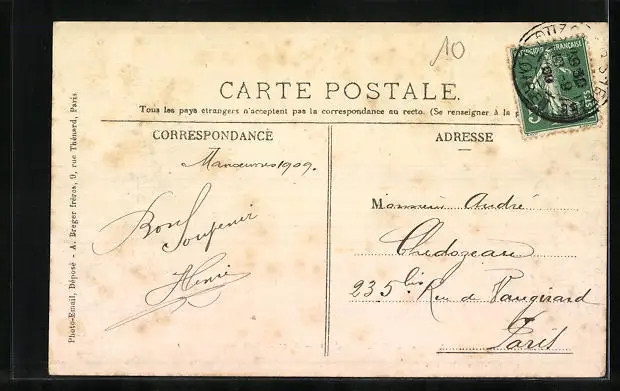 10
CARTE POSTALE.
Tous les pays étrangers n'acceptent pas la correspondance au recto. (Se renseigner à la p
CORRESPONDANCE
ADRESSE
Manœuvres 1909.
Bon Souvenir
Henri
Monsieur André
Chedozeau
235 bis Rue de Vaugirard
Paris
Photo-Email, Déposé - A. Breger frères, 9, rue Thénard, Paris